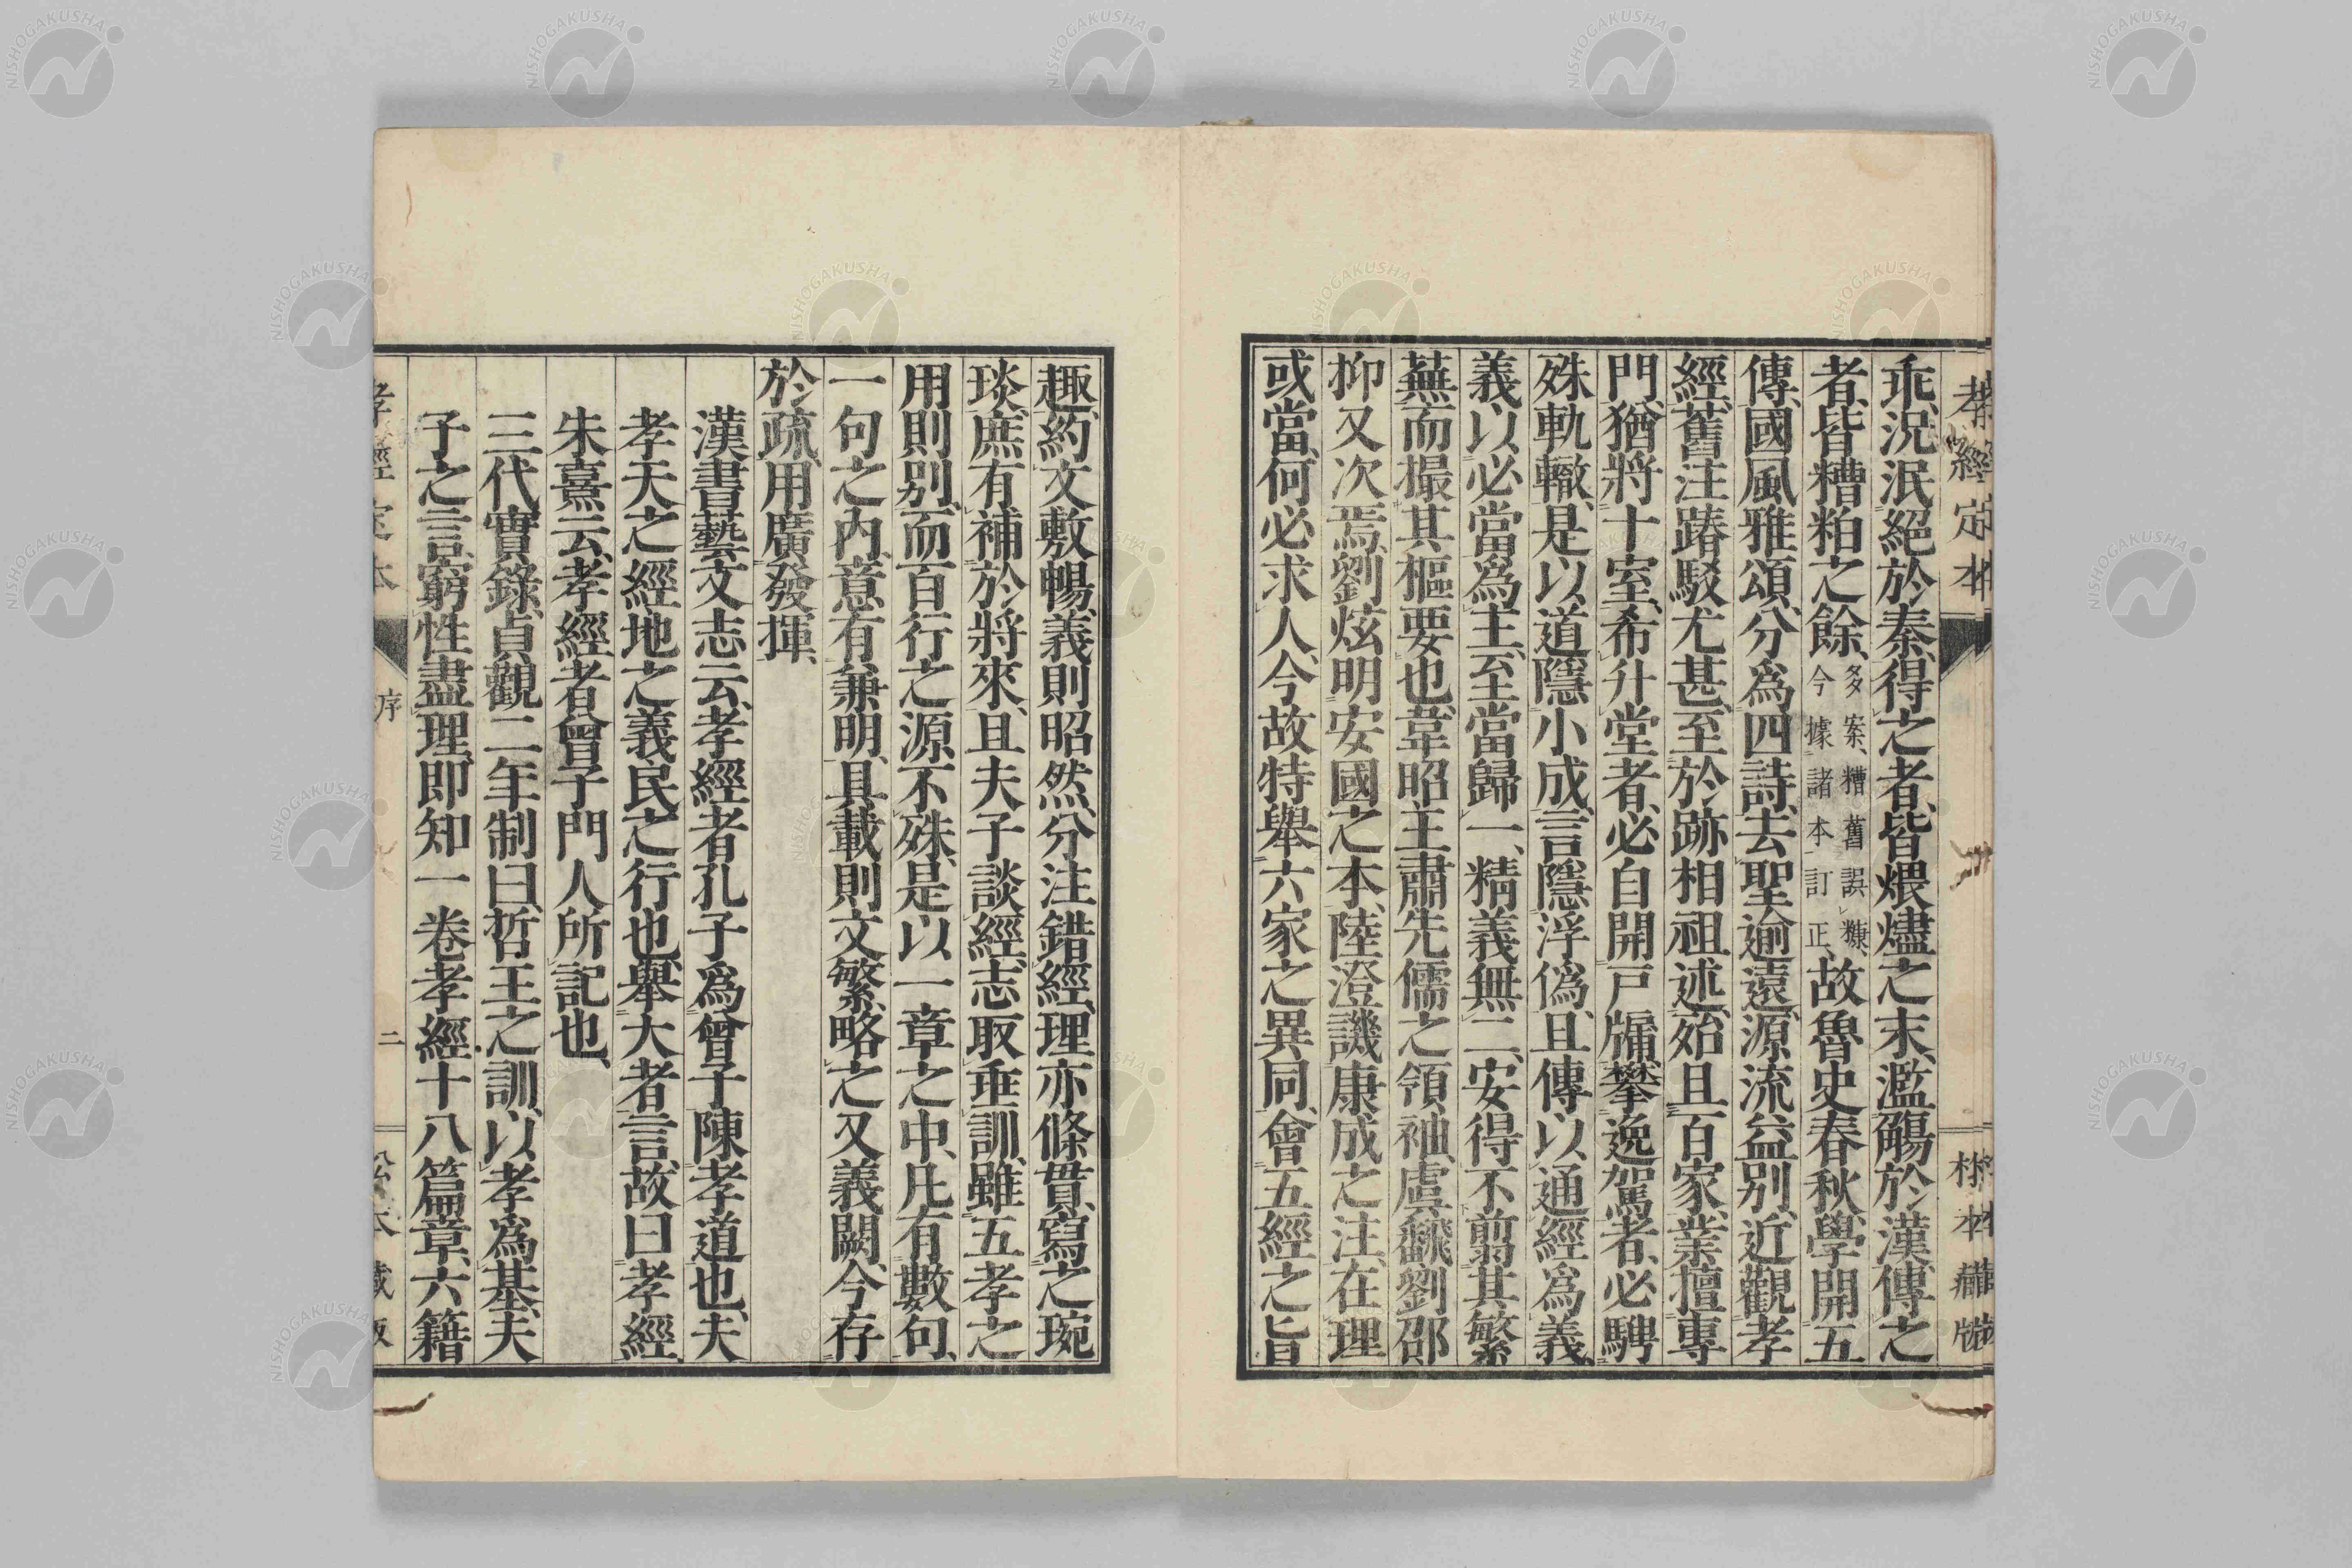 孝經定本
松本藏版
乖、況泯絕於秦、得之者、皆煨燼之末、濫觴於漢、傳之
者、皆糟粕之餘、多案、糟舊誤糠、今據諸本訂正、故魯史春秋、學開五
傳、國風雅頌、分爲四詩、去聖逾遠、源流益別、近觀孝
經、舊注踳駁尤甚、至於跡相祖述、殆且百家、業擅專
門、猶將十室、希升堂者、必自開戶牖、攀逸駕者、必騁
殊軌轍、是以道隱小成、言隱浮僞、且傳以通經爲義、
義以必當爲主、至當歸一、精義無二、安得不翦其繁
蕪而撮其樞要也、韋昭王肅、先儒之領袖、虞飜劉邵、
抑又次焉、劉炫明安國之本、陸澄譏康成之注、在理
或當、何必求人、今故特舉六家之異同、會五經之旨
趣、約文敷暢、義則昭然、分注錯經、理亦條貫、寫之琬
琰、庶有補於將來、且夫子談經、志取垂訓、雖五孝之
用則別、而百行之源不殊、是以一章之中、凡有數句、
一句之內、意有兼明、具載則文繁、略之又義闕、今存
於疏、用廣發揮、
漢書藝文志云、孝經者孔子爲曾子陳孝道也、夫
孝天之經地之義民之行也、舉大者言、故曰孝經
朱熹云、孝經者曾子門人所記也、
三代實錄、貞觀二年制曰、哲王之訓、以孝爲基、夫
子之言、窮性盡理、即知一卷孝經十八篇章、六籍
序
二